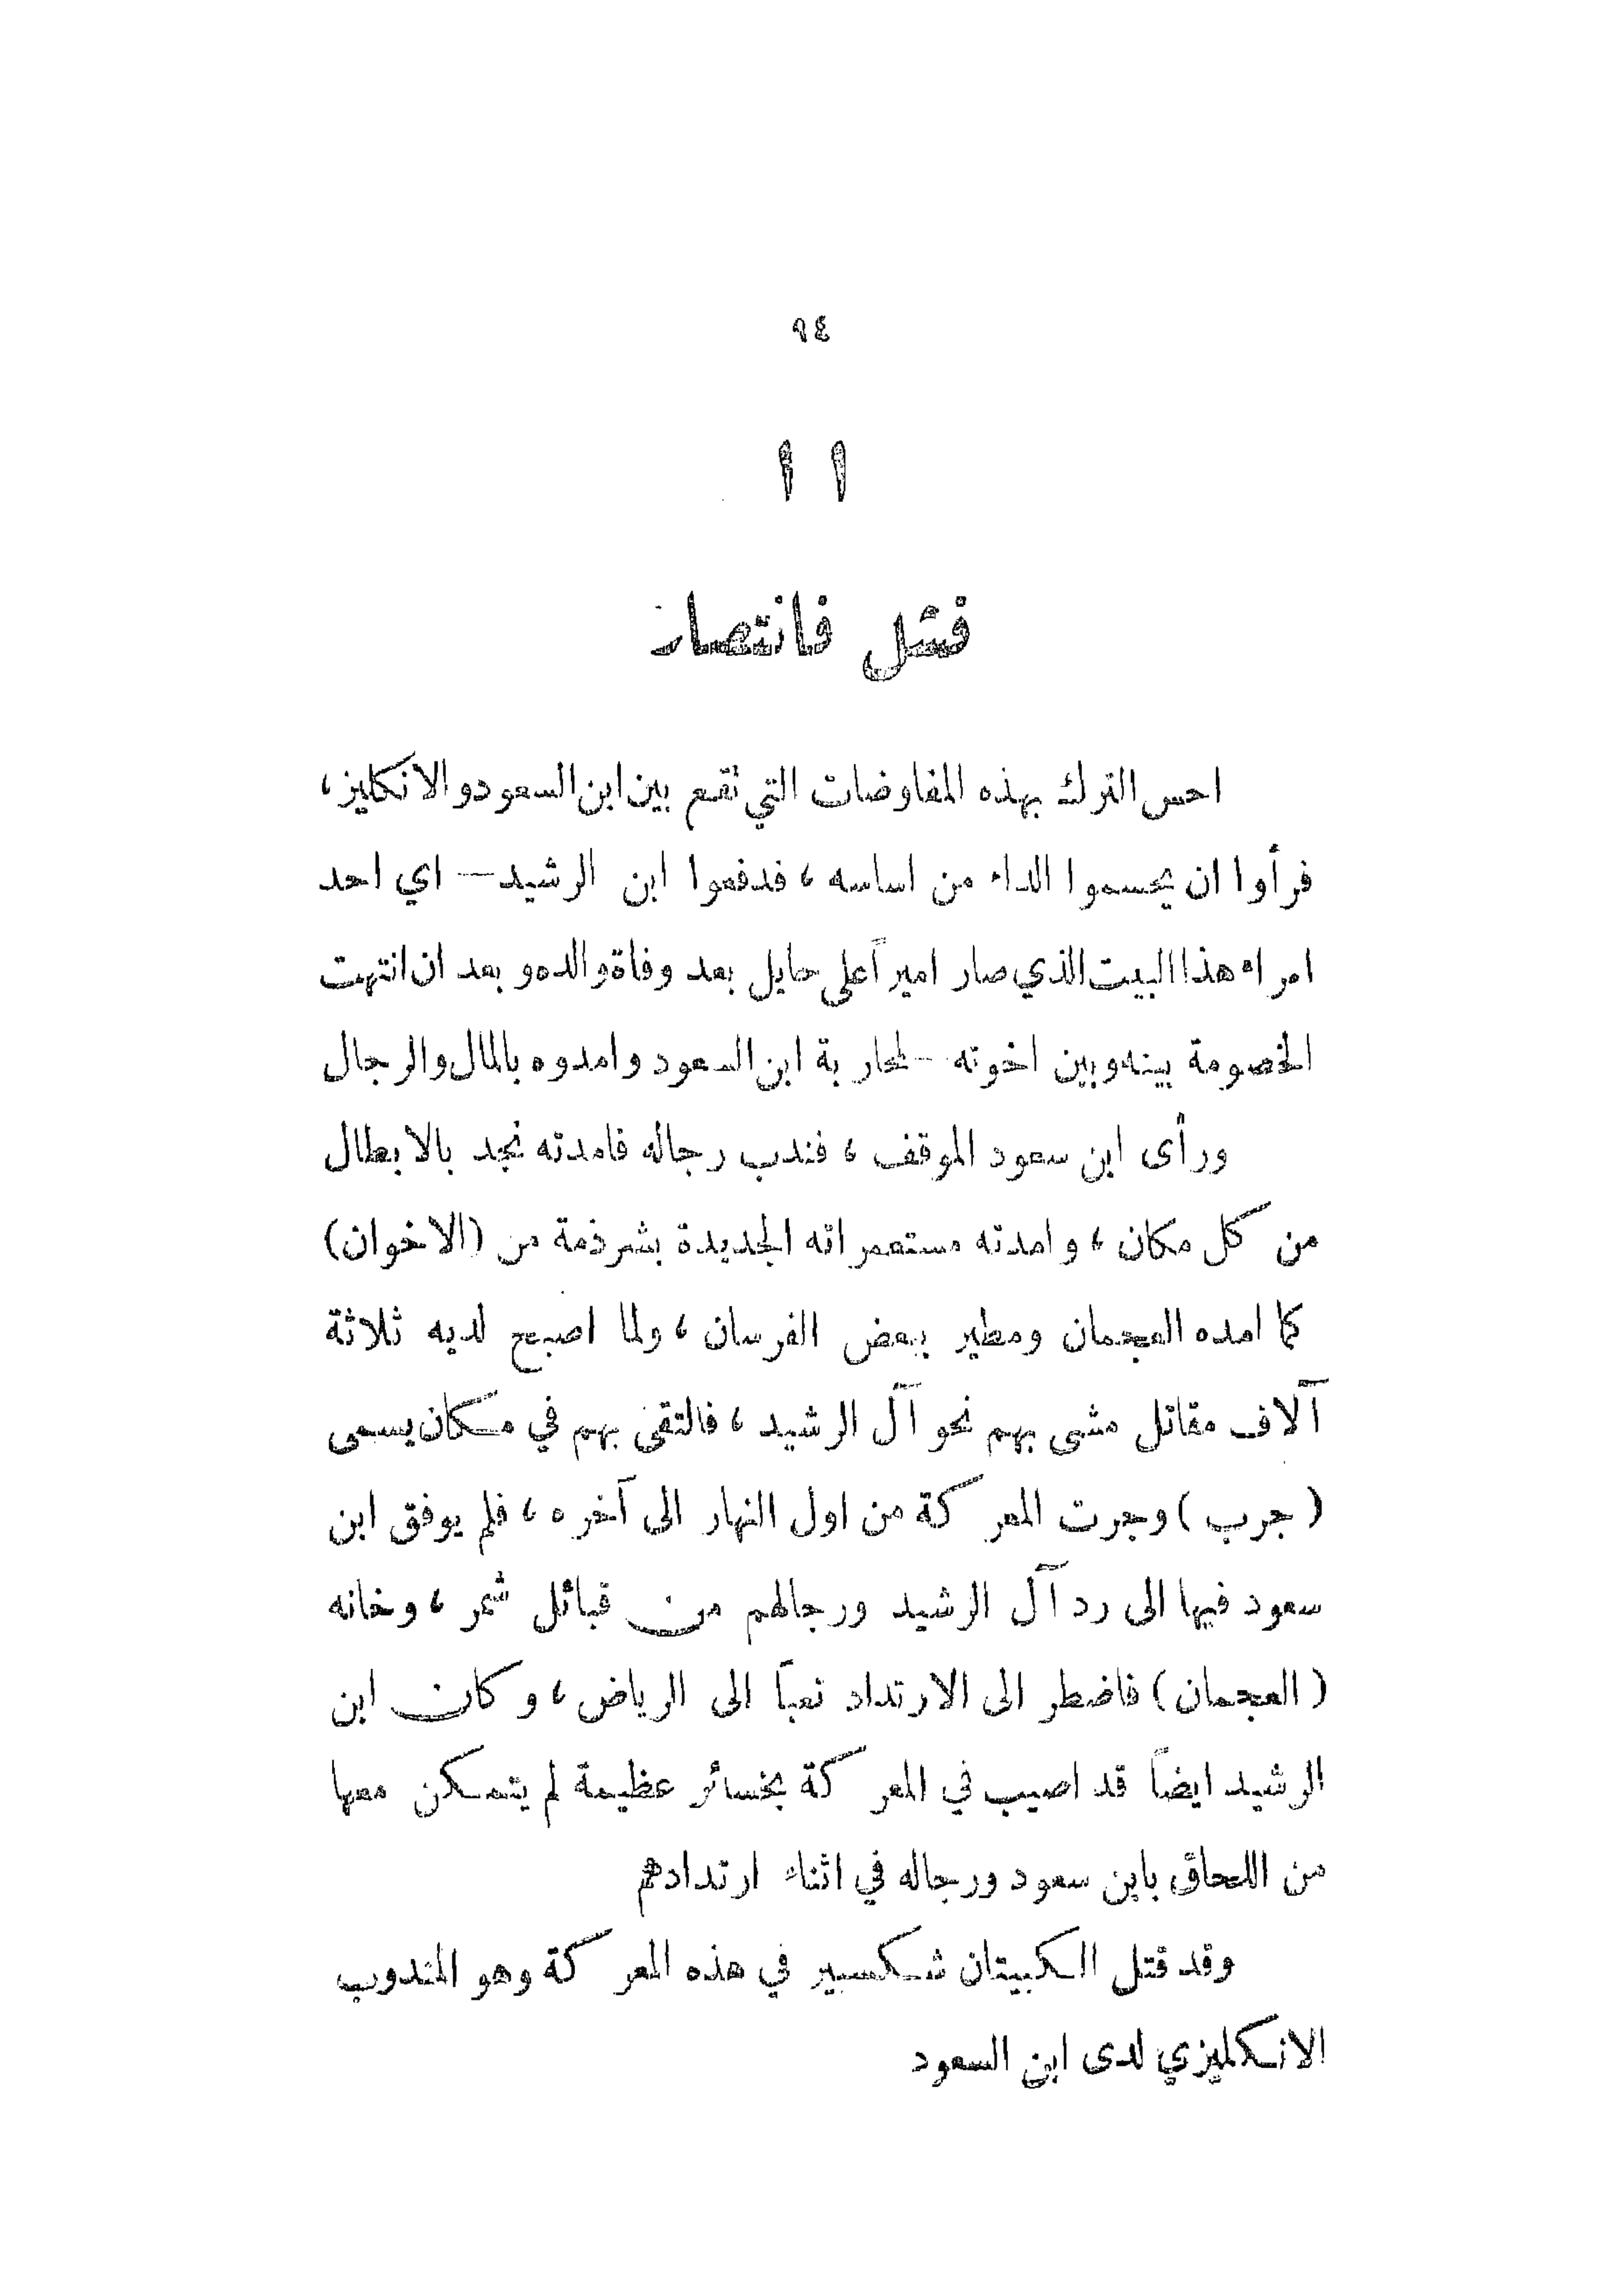 ٩٤
١١
فشل فانتصار
احس الترك بهذه المفاوضات التي تقع بين ابن السعود والانكليز ،
فرأوا ان يحسموا الداء من اساسه ، فدفعوا ابن الرشيد — اي احد
امراء هذا البيت الذي صار اميراً على حايل بعد وفاة والده وبعد ان انتهت
الخصومة بينه وبين اخوته — لمحاربة ابن السعود وامدوه بالمال والرجال
ورأى ابن سعود الموقف ، فندب رجاله فامدته نجد بالابطال
من كل مكان ، وامدته مستعمراته الجديدة بشرذمة من (الاخوان)
كما امده العجمان ومطير ببعض الفرسان ، ولما اصبح لديه ثلاثة
آلاف مقاتل مشى بهم نحو آل الرشيد ، فالتقى بهم في مكان يسمى
( جرب ) وجرت المعركة من اول النهار الى آخره ، فلم يوفق ابن
سعود فيها الى رد آل الرشيد ورجالهم من قبائل شمر ، وخانه
( العجمان ) فاضطر الى الارتداد تعباً الى الرياض ، وكان ابن
الرشيد ايضاً قد اصيب في المعركة بخسائر عظيمة لم يتمكن معها
من اللحاق بابن سعود ورجاله في اثناء ارتدادهم
وقد قتل الكبيتان شكسبير في هذه المعركة وهو المندوب
الانكليزي لدى ابن السعود